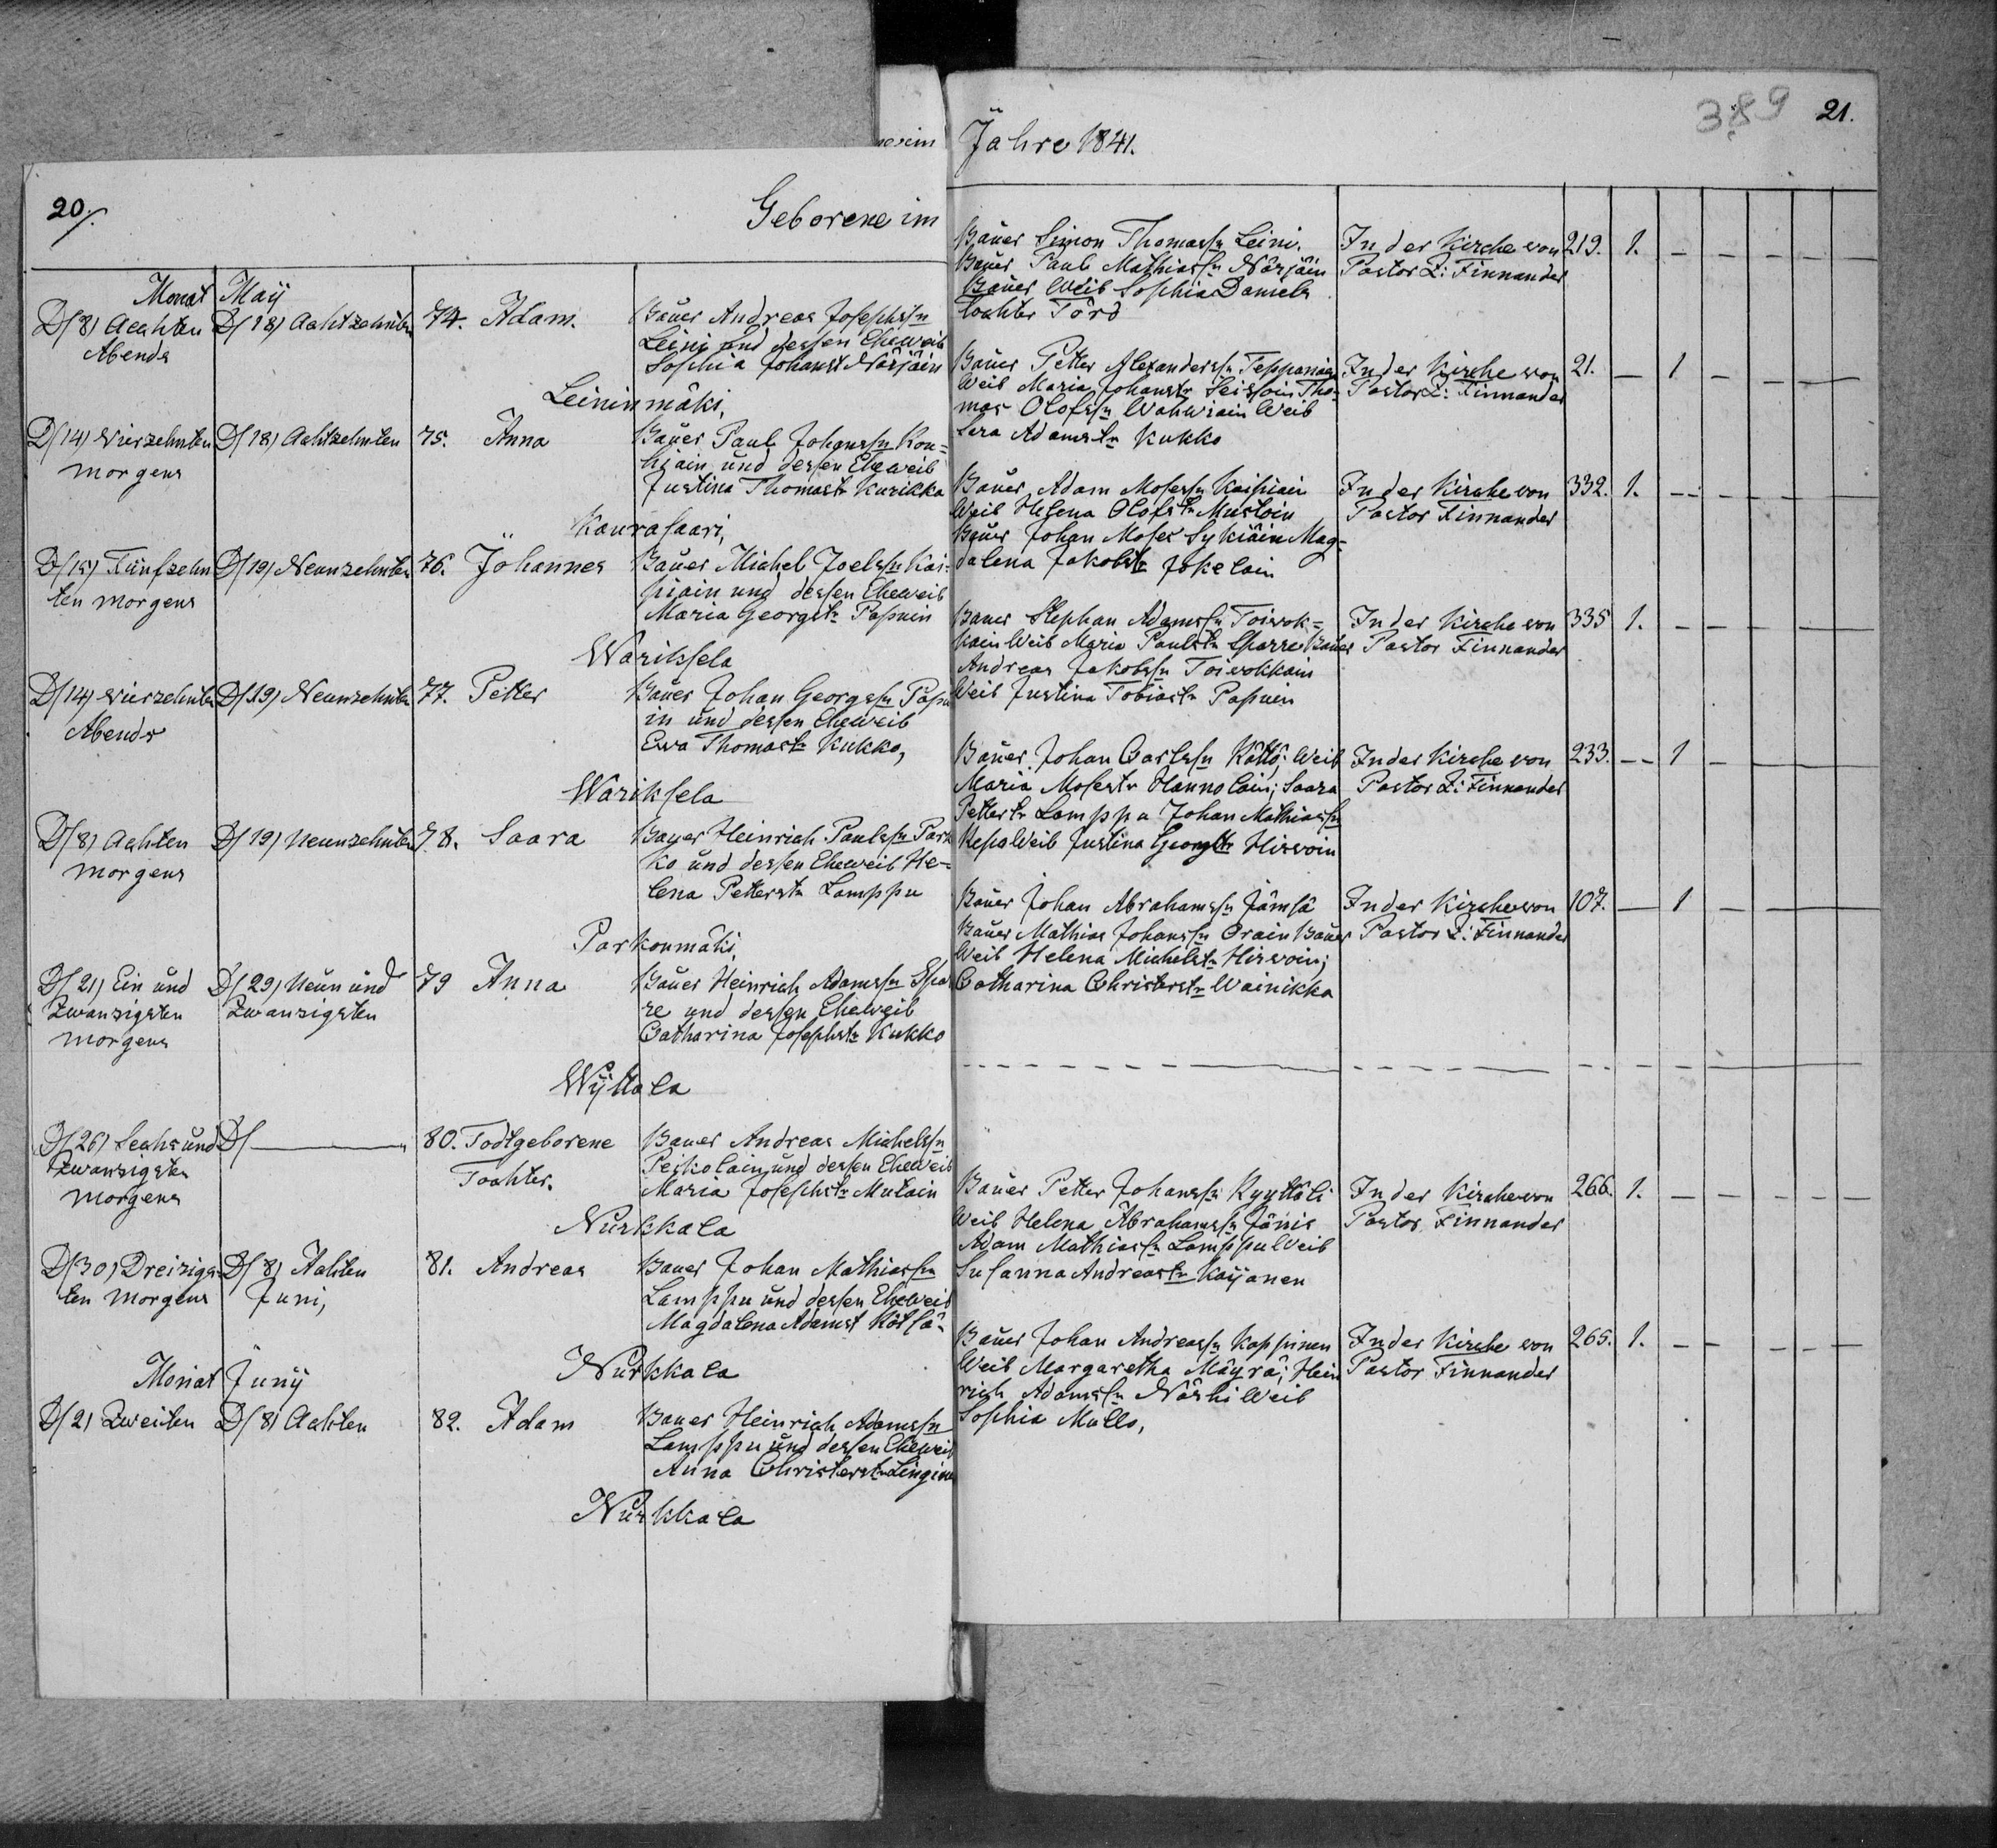 20/.
Geborene im
Monat Maÿ
D/8) Aachten Abends
D/18) Aachtzehnten
74. Adam.
Bauer Andreas Josephssn
Leini und dessen Eheweib
Sophia Johanst Närjäin
Leininmäki,
D/14) Vierzehnten
morgens
D/18) Aachtzehnten
75. Anna
Bauer Paul Johanssn Kou=
hiain und dessen Eheweib
Justina Thomastr Kurikka
Kaurasaari,
D/15) Fünfzehn
ten morgens
D/19) Neunzehnten
76. Johannes
Bauer Michel Joelssn Kai=
piain und dessen Eheweib
Maria Georgstr Papuin
Wariksela
D/14) Vierzehnten
Abends
D/19) Neunzehnten
77. Petter
Bauer Johan Georgssn Papu
in und dessen Eheweib
Ewa Thomastr Kukko,
Wariksela
D/8) Achten
morgens
D/19) Neunzehnten
78. Saara
Bauer Heinrich Paulssn Park
ko und dessen Eheweib He=
lena Petterstr Lamppu
Parkonmäki,
D/21) Ein und
Zwanzigsten
morgens
D/29) Neun und
Zwanzigsten
79 Anna
Bauer Heinrich Adamssn Spar
re und dessen Eheweib
Catharina Josephstr Kukko
Wÿttola
D/26) Sechs und
Zwanzigsten
morgens
D/
80. Todtgeborene
Tochter.
Bauer Andreas Michelssn
Peikolain und dessen Eheweib
Maria Josephstr Mutain
Nurkkala
D/30) Dreizigs=
ten morgens
D/8) Achten
Juni,
81. Andreas
Bauer Johan Mathiassn
Lamppu und dessen Eheweib
Magdalena Adamst Kötsä-
Nurkkala
Monat Junÿ
D/2) Zweiten
D/8) Achten
82. Adam
Bauer Heinrich Adamssn
Lamppu und dessen Eheweib
Anna Christerstr
Nurkkala
389 21.
Jahre 1841.
Bauer Simon Thomassn Leini.
Bauer Paul Mathiassn Närjäin
Bauer Weib Sophia Daniels
tochter Törö
In der Kirche von
Pastor Z: Finnander
219. 1. – – – – –
Bauer Petter Alexanderssn Teppanain
Weib Maria Johanstr Seissoin Tho=
mas Olofssn Wahwiain Weib
Sara Adamstr Kukko
In der Kirche von
Pastor Z: Finnander
21. — 1 – – – –
Bauer Adam Mosessn Kaipiain
Weib Helena Olofstr Mustoin
Bauer Johan Moses Sykiäin Mag=
dalena Jakobstr Jokelain
In der Kirche von
Pastor Finnander
332. 1. – – – – –
Bauer Stephan Adamssn Toiwok=
kain Weib Maria Paulstr Sparre Bauer
Andreas Jakobssn Toiwokkain
Weib Justina Tobiastr Papuin
In der Kirche von
Pastor Finnander
335 1. – – – – –
Bauer Johan Carlssn Kättö; Weib
Maria Mosestr Hannolain; Saara
Petterstr Lamppu Johan Mathiassn
Repo Weib Justina Georgstr Hirwoin
In der Kirche von
Pastor Z: Finnander
233. – – 1 – – – –
Bauer Johan Abrahamssn Jämsä
Bauer Mathias Johanssn Orain Bauer
Weib Helena Michelstr Hirwoin;
Catharina Christerstr Wainikka
In der Kirche von
Pastor Z: Finnander
107. — 1 – – – –
Bauer Petter Johanssn Kyyttöli
Weib Helena Abrahamssn Jänis
Adam Mathiassn Lamppu Weib
Susanna Andreastr Kaijanen
In der Kirche von
Pastor Finnander
266. 1. – – – – –
Bauer Johan Andreassn Kappinen
Weib Margaretha Mäyrä; Hein
rich Adamssn Närhi Weib
Sophia Mullo,
In der Kirche von
Pastor Finnander
265. 1. – – – – –